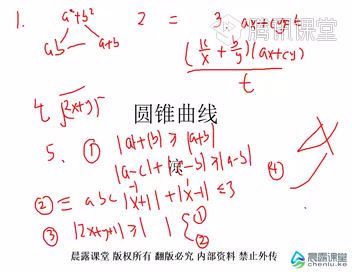 1. a²+b² 2 = 3. ax+cy=t
ab a+b
(k/x + 3/y)(ax+cy)
t
4 √2x+y
圆锥曲线
5. ① |a|+|b| ≥ |a+b|
|a-c|+|c-b| ≥ |a-b|
② 三 abc |x+1|+|x-1| ≤ 3
④
③ |2x+y+1| ≥ | | { ① ②
晨露课堂 版权所有 翻版必究 内部资料 禁止外传
腾讯课堂
晨露课堂
chenlu.ke